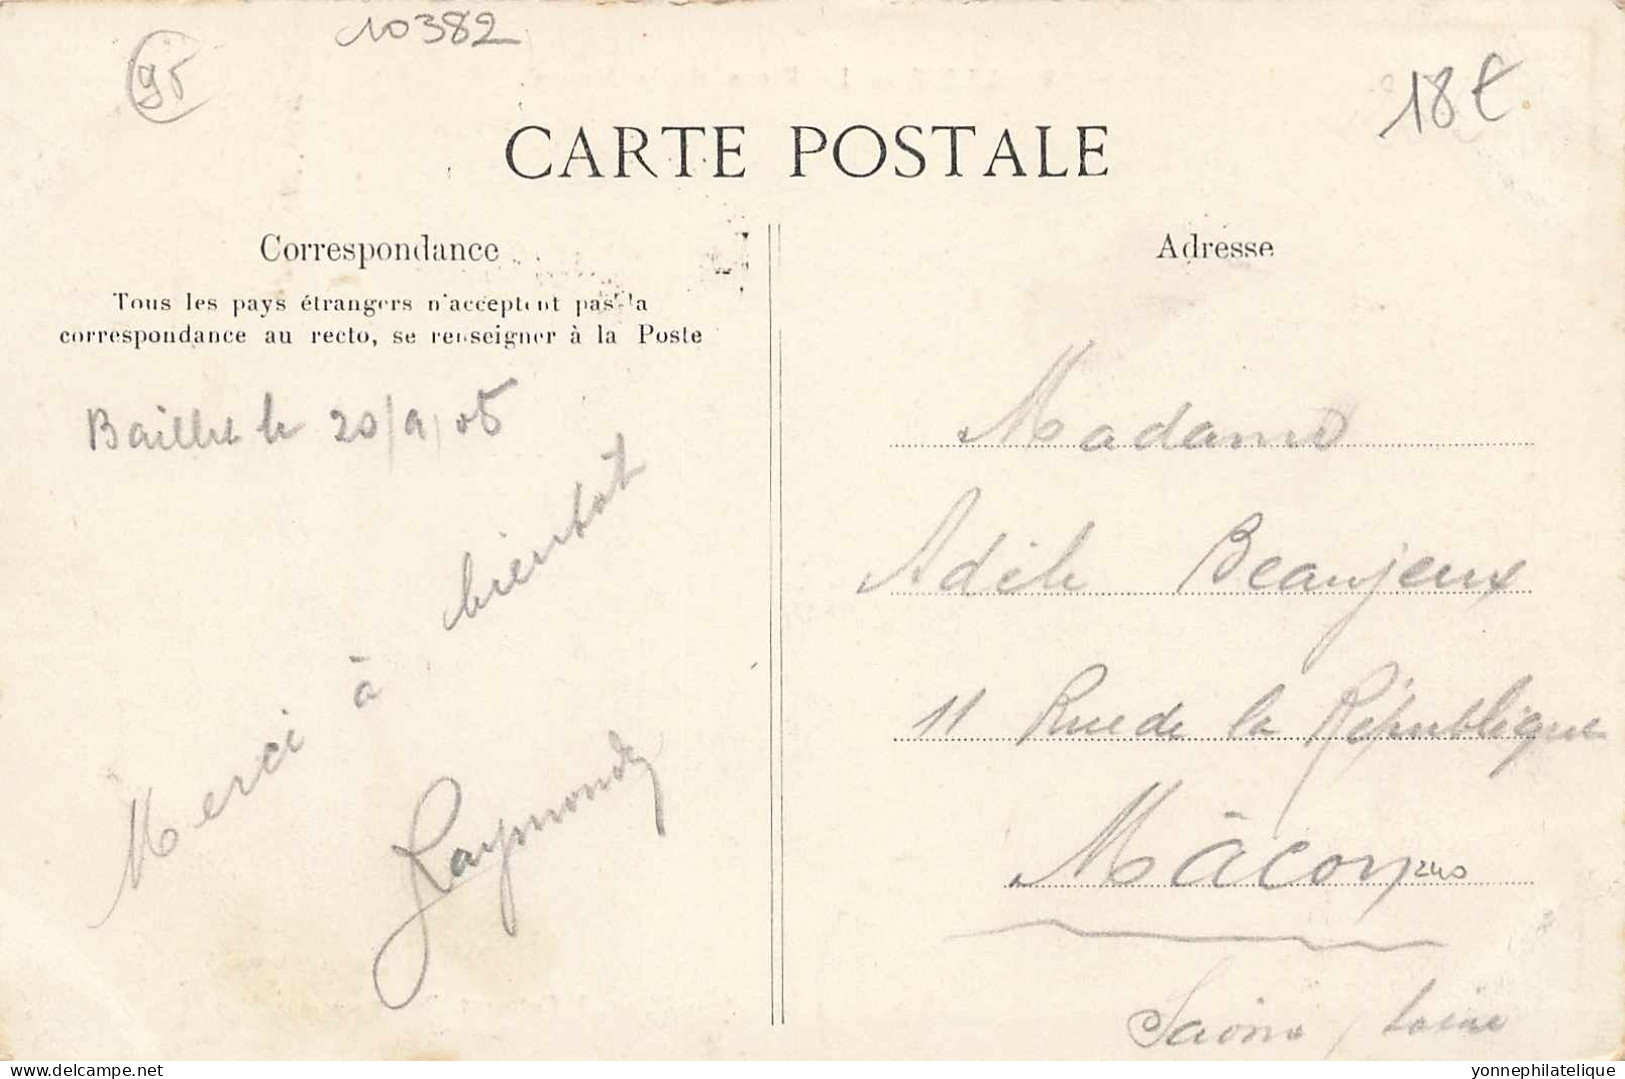 10382
95
18€
CARTE POSTALE
Correspondance
Tous les pays étrangers n'acceptent pas la
correspondance au recto, se renseigner à la Poste
Baillet le 20/9/05
Merci à bientot
Raymonde
Adresse
Madame
Adèle Beaujeux
11 Rue de la République
Mâcon
240
Saône / Loire
delcampe.net
yonnephilatelique